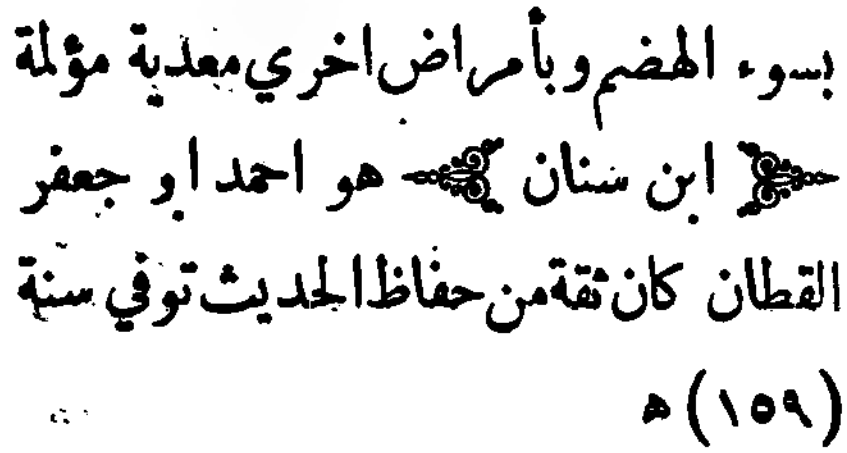 بسوء الهضم وبأمراض اخري معدية مؤلمة
﴿ ابن سنان ﴾ هو احمد او جعفر
القطان كان ثقة من حفاظ الحديث توفي سنة
(١٥٩) ه